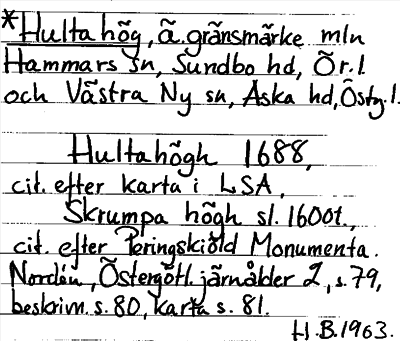 *Hulta hög, ä. gränsmärke mln
Hammars sn, Sundbo hd, Ör. l.
och Västra Ny sn, Aska hd, Östg. l.
Hultahögh 1688,
cit. efter karta i LSA,
Skrumpa högh sl. 1600t.,
cit. efter Peringskiöld Monumenta.
Nordén, Östergötl. järnålder 2, s. 79,
beskrivn. s. 80, karta s. 81.
H.B. 1963.